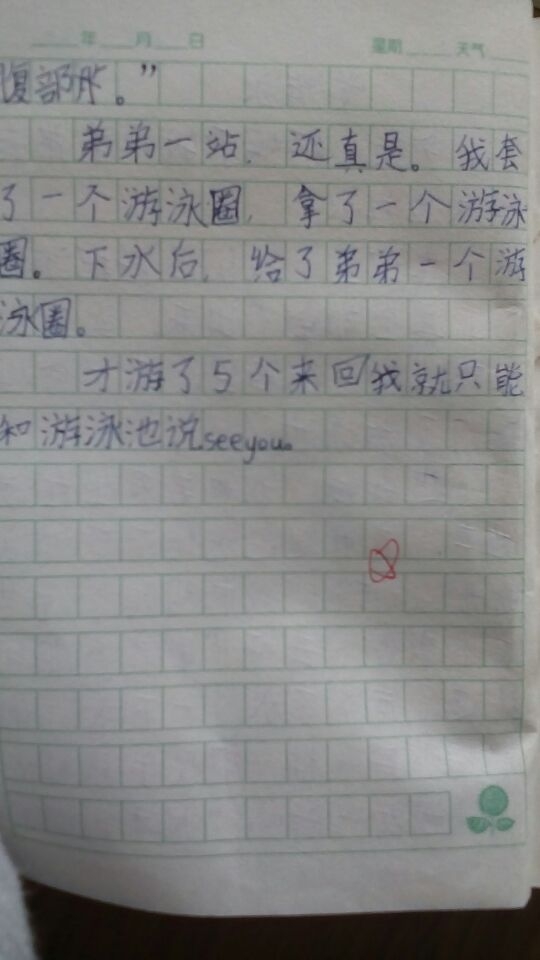 年 月 日 星期 天气
腹部所。”
弟弟一站，还真是。我套
了一个游泳圈，拿了一个游泳
圈。下水后，给了弟弟一个游
泳圈。
才游了5个来回我就只能
和游泳池说seeyou。